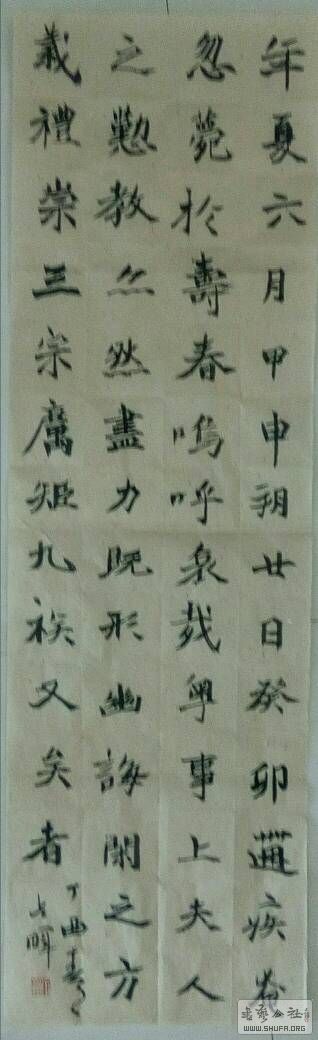 年夏六月甲申朔廿日癸卯遘疾
忽薨於壽春嗚呼哀哉粤事上夫人
之懃教然盡力既形幽誨閑之方
義禮崇三宗厲九族又矣者
丁曲春
書藝公社
WWW.SHUFA.ORG